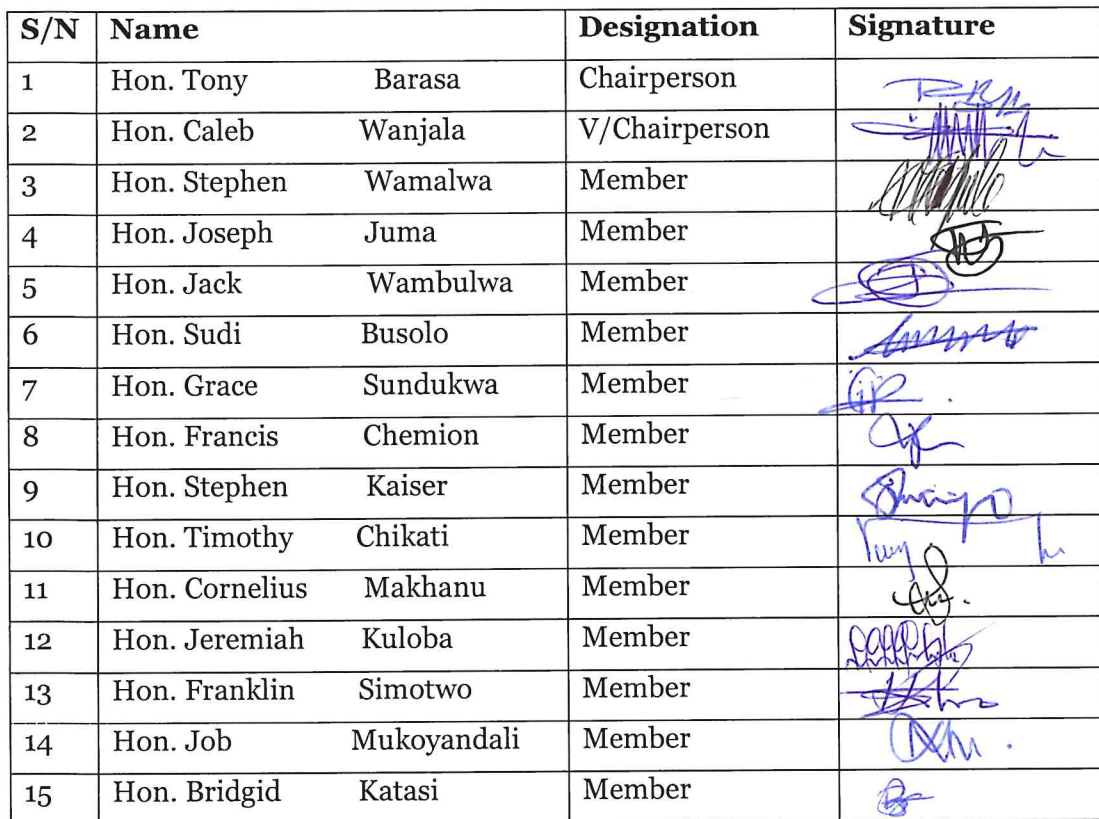 S/N Name Designation Signature
1 Hon. Tony Barasa Chairperson
2 Hon. Caleb Wanjala V/Chairperson
3 Hon. Stephen Wamalwa Member
4 Hon. Joseph Juma Member
5 Hon. Jack Wambulwa Member
6 Hon. Sudi Busolo Member
7 Hon. Grace Sundukwa Member
8 Hon. Francis Chemion Member
9 Hon. Stephen Kaiser Member
10 Hon. Timothy Chikati Member
11 Hon. Cornelius Makhanu Member
12 Hon. Jeremiah Kuloba Member
13 Hon. Franklin Simotwo Member
14 Hon. Job Mukoyandali Member
15 Hon. Bridgid Katasi Member